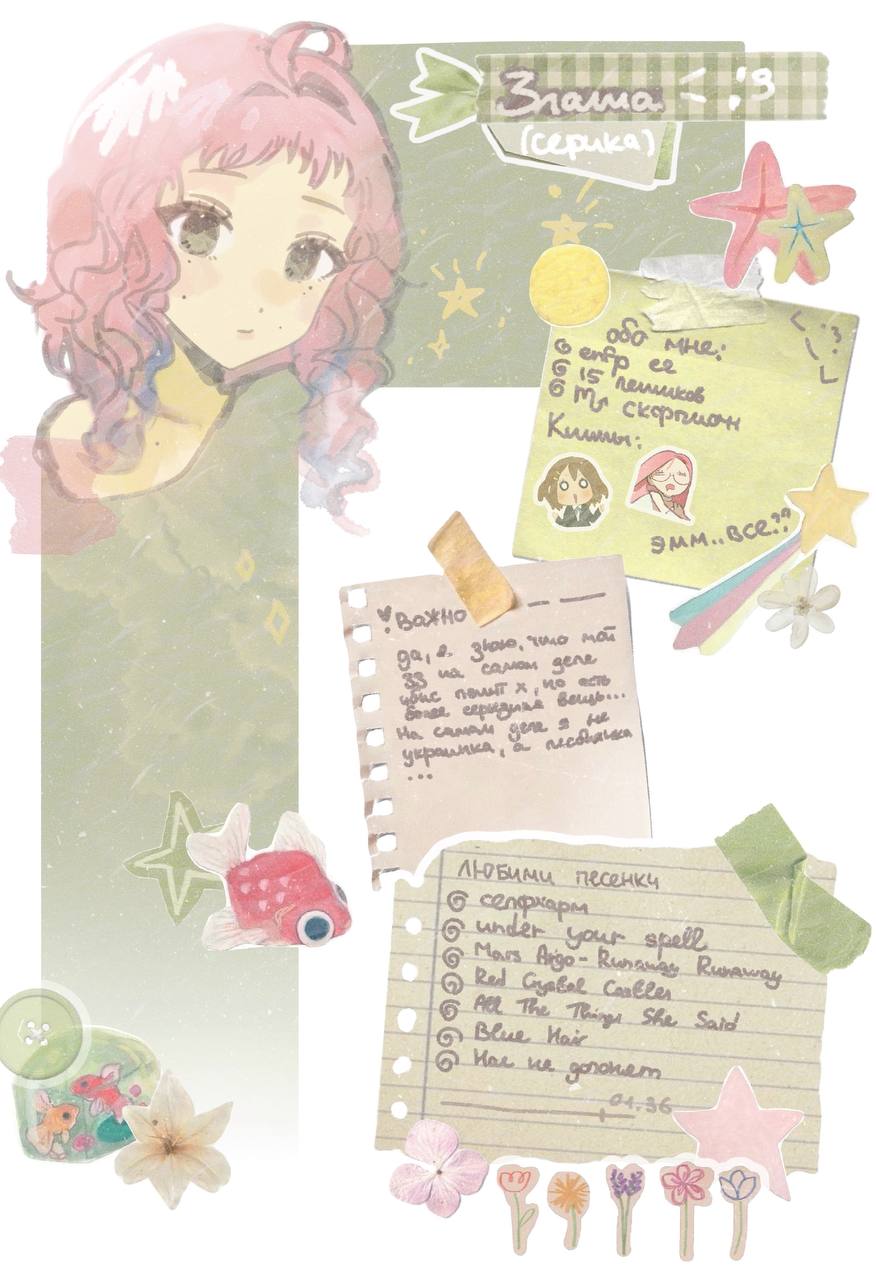 Злаша :3
(серика)
обо мне:
enfp ce
15 пешиков
♏ скорпион
Кинны:
эмм..все??
Важно
да, я знаю, что мой
ЗЗ на самом деле
убис полит х, но есть
более серьёзная вещь...
На самом деле я не
украинка, а лесбиянка
...
ЛЮБИМИ ПЕСЕНКИ
селфхарм
under your spell
Mars Argo - Runaway Runaway
Red Crystal Castles
All The Things She Said
Blue Hair
Нас не догонят
01.36